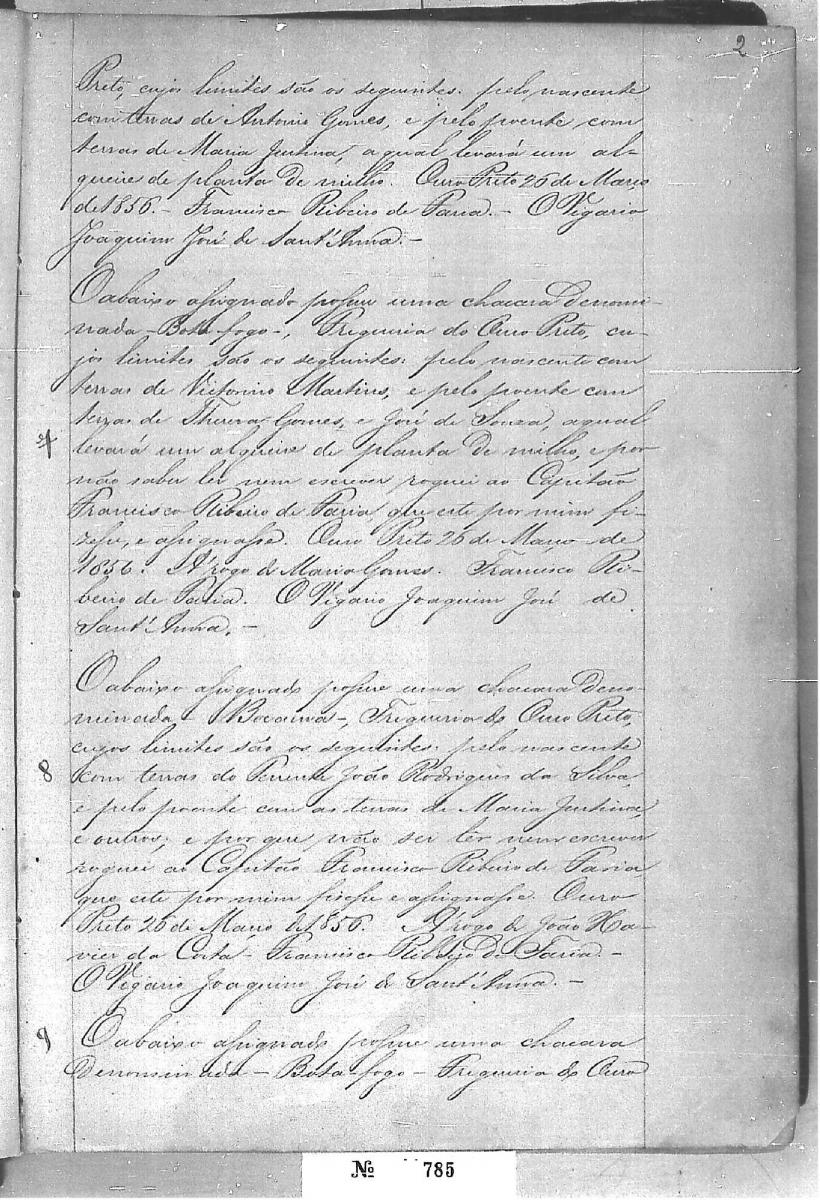 2
Preto, cujos limites são os seguintes: pelo nascente
com terras de Antonio Gomes, e pelo poente com
terras de Maria Justina, a qual levará um al-
queire de planta de milho. Ouro Preto 26 de Março
de 1856. - Francisco Ribeiro de Faria. - O Vigario
Joaquim José de Sant'Anna. -
O abaixo assignado possue uma chacara denomi-
nada - Bota-fogo -, Freguesia do Ouro Preto, cu-
jos limites são os seguintes: pelo nascente com
terras de Victorino Martins, e pelo poente com
terras de Thereza Gomes, e José de Souza, a qual
levará um alqueire de planta de milho, e por
não saber ler nem escrever roguei ao Capitão
Francisco Ribeiro de Faria, que este por mim fi-
zesse, e assignasse. Ouro Preto 26 de Março de
1856. A rogo de Maria Gomes. Francisco Ri-
beiro de Faria. O Vigario Joaquim José de
Sant'Anna. -
O abaixo assignado possue uma chacara deno-
minada - Bocaina -, Freguesia do Ouro Preto,
cujos limites são os seguintes: pelo nascente
8 com terras do Tenente João Rodrigues da Silva,
e pelo poente com as terras de Maria Justina,
e outros; e por que não ser ler nem escrever
roguei ao Capitão Francisco Ribeiro de Faria
que este por mim fisesse e assignasse. Ouro
Preto 26 de Março de 1856. A rogo de João Xa-
vier da Costa - Francisco Ribeiro de Faria. -
O Vigario Joaquim José de Sant'Anna. -
9 O abaixo assignado possue uma chacara
denominada - Bota-fogo - Freguesia do Ouro
Nº 785